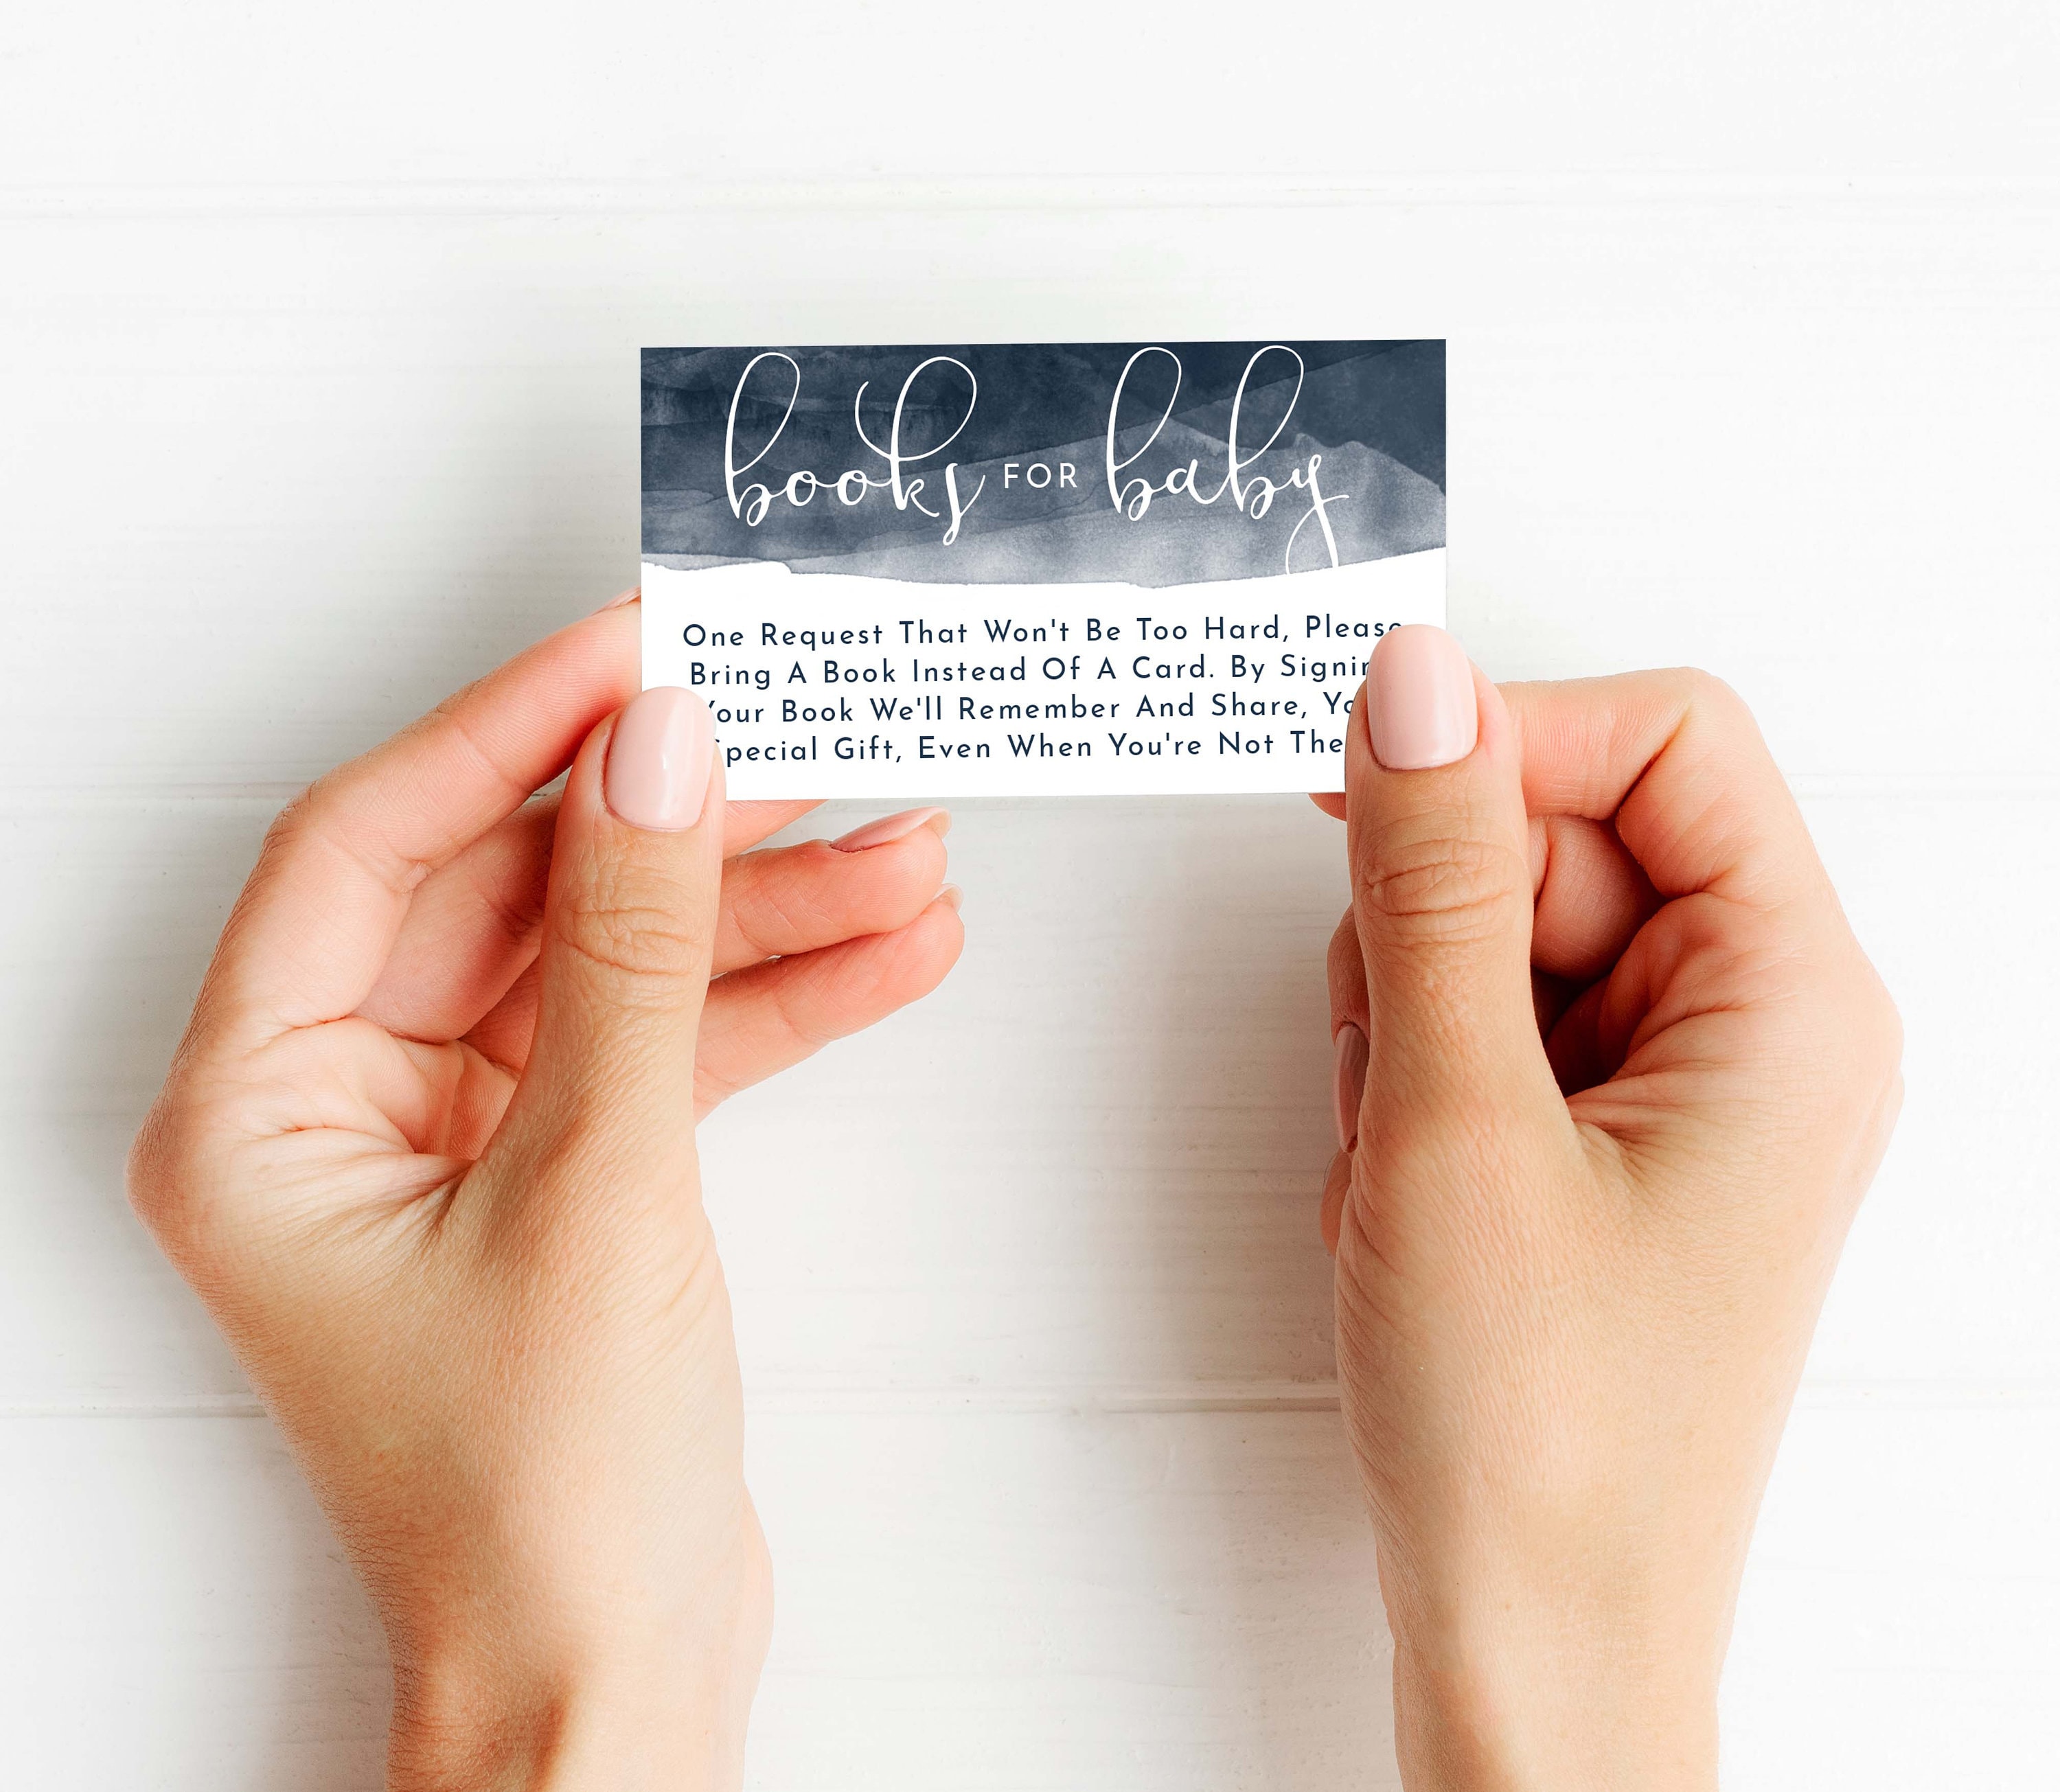 books FOR baby
One Request That Won't Be Too Hard, Please
Bring A Book Instead Of A Card. By Signin
Your Book We'll Remember And Share, Yo
Special Gift, Even When You're Not The